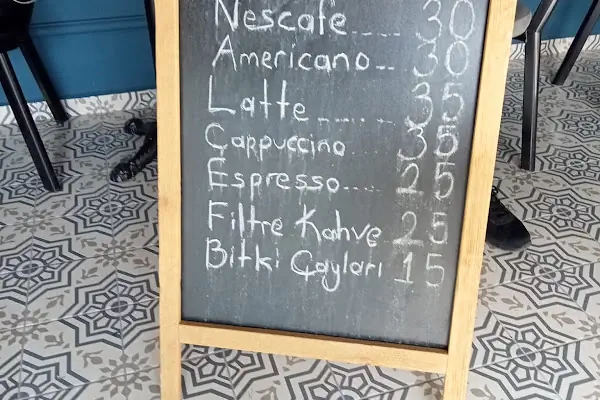 Nescafe..... 30
Americano... 30
Latte........ 35
Cappuccino 35
Espresso..... 25
Filtre Kahve 25
Bitki Çayları 15